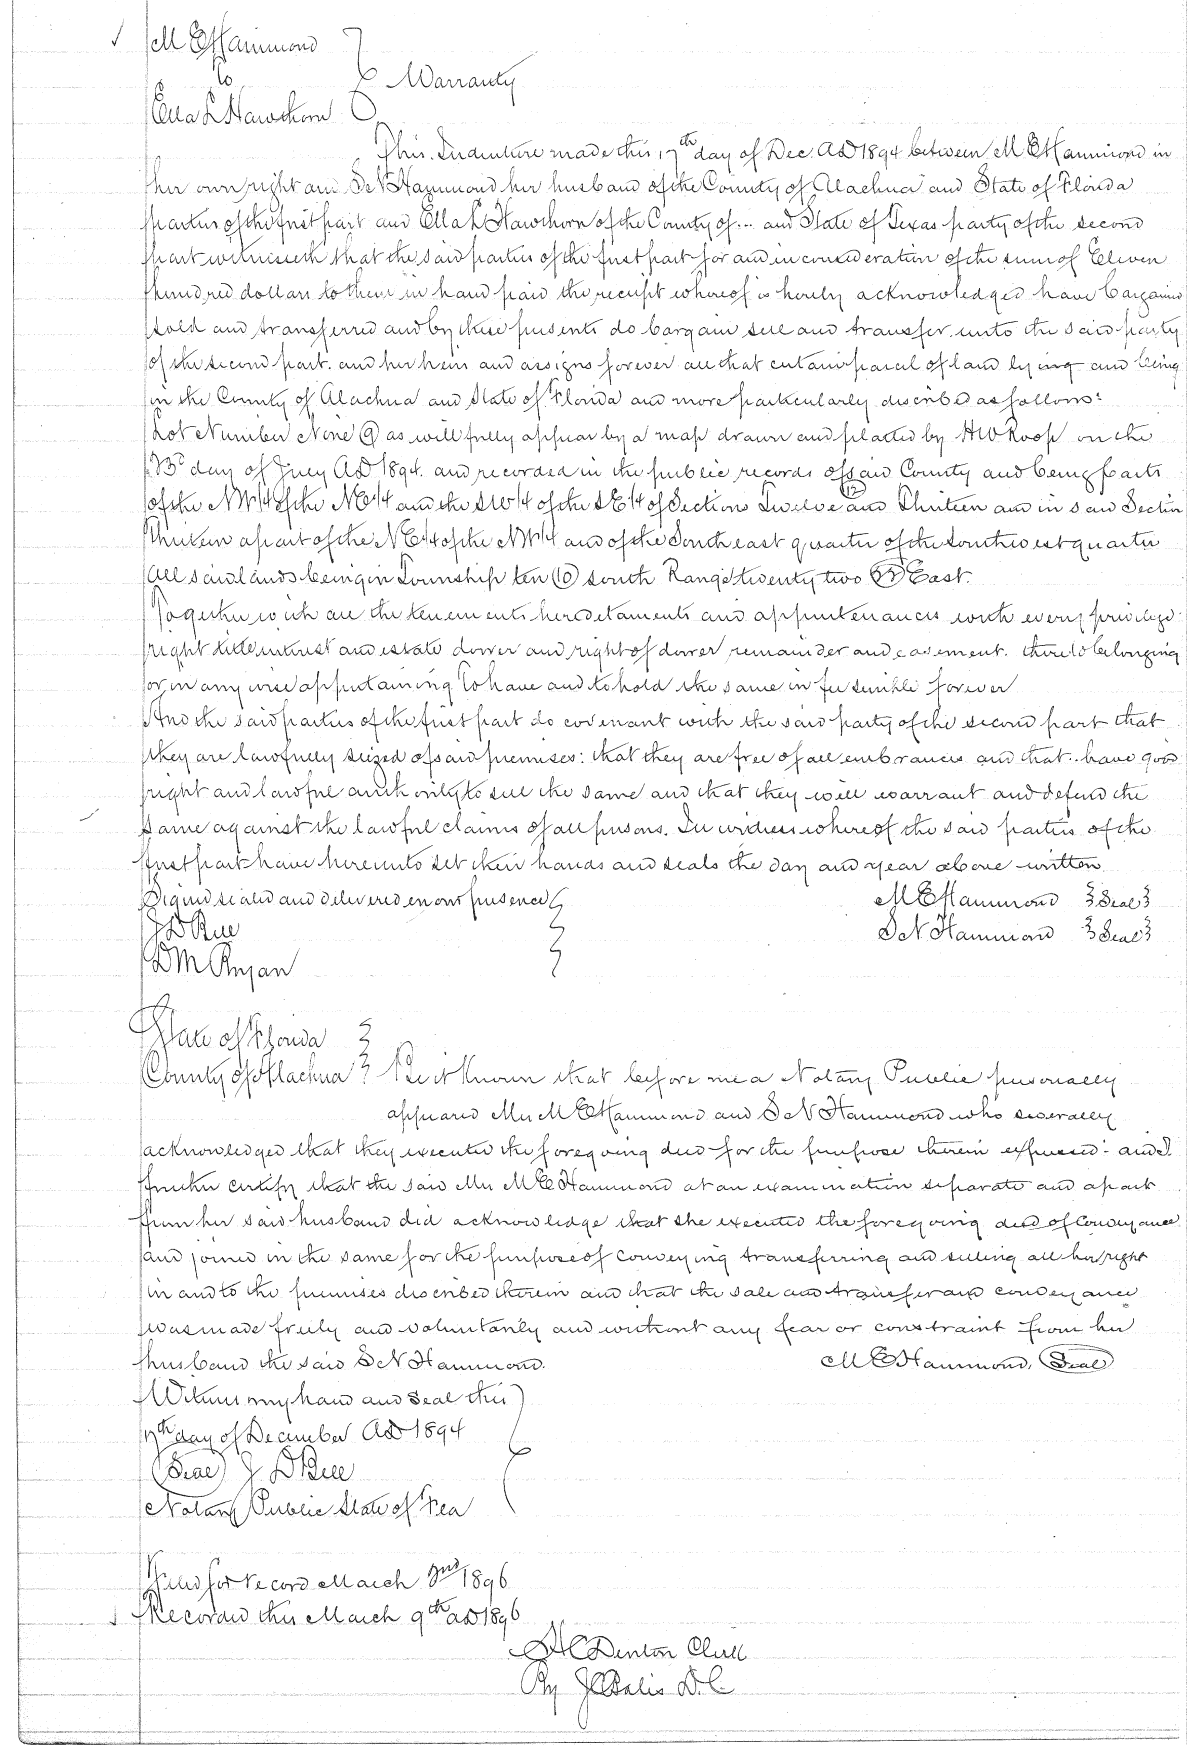 M E Hammond
to
Warranty
Ella L Hawthorn
This Indenture made this 17th day of Dec. AD 1894 between M E Hammond in
her own right and S N Hammond her husband of the County of Alachua and State of Florida
parties of the first part and Ella L Hawthorn of the County of ... and State of Texas party of the second
part witnesseth that the said parties of the first part for and in consideration of the sum of Eleven
hundred dollars to them in hand paid the receipt whereof is hereby acknowledged have bargained
sold and transferred and by these presents do bargain sell and transfer unto the said party
of the second part. and her heirs and assigns forever all that certain parcel of land lying and being
in the County of Alachua and State of Florida and more particularly described as follows:
Lot Number Nine (9) as will fully appear by a map drawn and platted by H W Roop on the
day of July AD 1894. and recorded in the public records of said County and being parts
of the NW 1/4 of the NE 1/4 and the SW 1/4 of the SE 1/4 of Sections Twelve (12) and Thirteen and in said Section
Thirteen a part of the NE 1/4 of the NW 1/4 and of the South east quarter of the southwest quarter
All said lands being in Township ten (10) south Range twenty two (22) East.
Together with all the tenements heredetaments and appurtenances with every privilege
right title intrust and estate dower and right of dower remainder and easement. thereto belonging
or in any wise appertaining To have and to hold the same in fee simple forever
And the said parties of the first part do covenant with the said party of the second part that
they are lawfully seized of said premises: that they are free of all embrances and that .. have good
right and lawful authority to sell the same and that they will warrant and defend the
same against the lawful claims of all persons. In witness whereof the said parties of the
first part have hereunto set their hands and seals the day and year above written
Signed sealed and delivered in our presence M E Hammond Seal
J D Rell S N Hammond Seal
D M
State of Florida
County of Alachua Be it Known that before me a Notary Public personally
appeared Mrs M E Hammond and S N Hammond who severally
acknowledged that they executed the foregoing deed for the purpose therein expressed: and I
further certify that the said Mrs M E Hammond at an examination separate and apart
from her said husband did acknowledge that she executed the foregoing deed of Conveyance
and joined in the same for the purpose of conveying transferring and selling all her right
in and to the premises described therein and that the sale and transfer and conveyance
was made freely and voluntarily and without any fear or constraint from her
husband the said S N Hammond. M E Hammond, (Seal)
Witness my hand and seal this
17th day of December AD 1894
(Seal) J D Rell
Notary Public State of Fla
Filed for record March 2nd 1896
Recorded this March 9th AD 1896
H C Denton Clerk
By D. C.